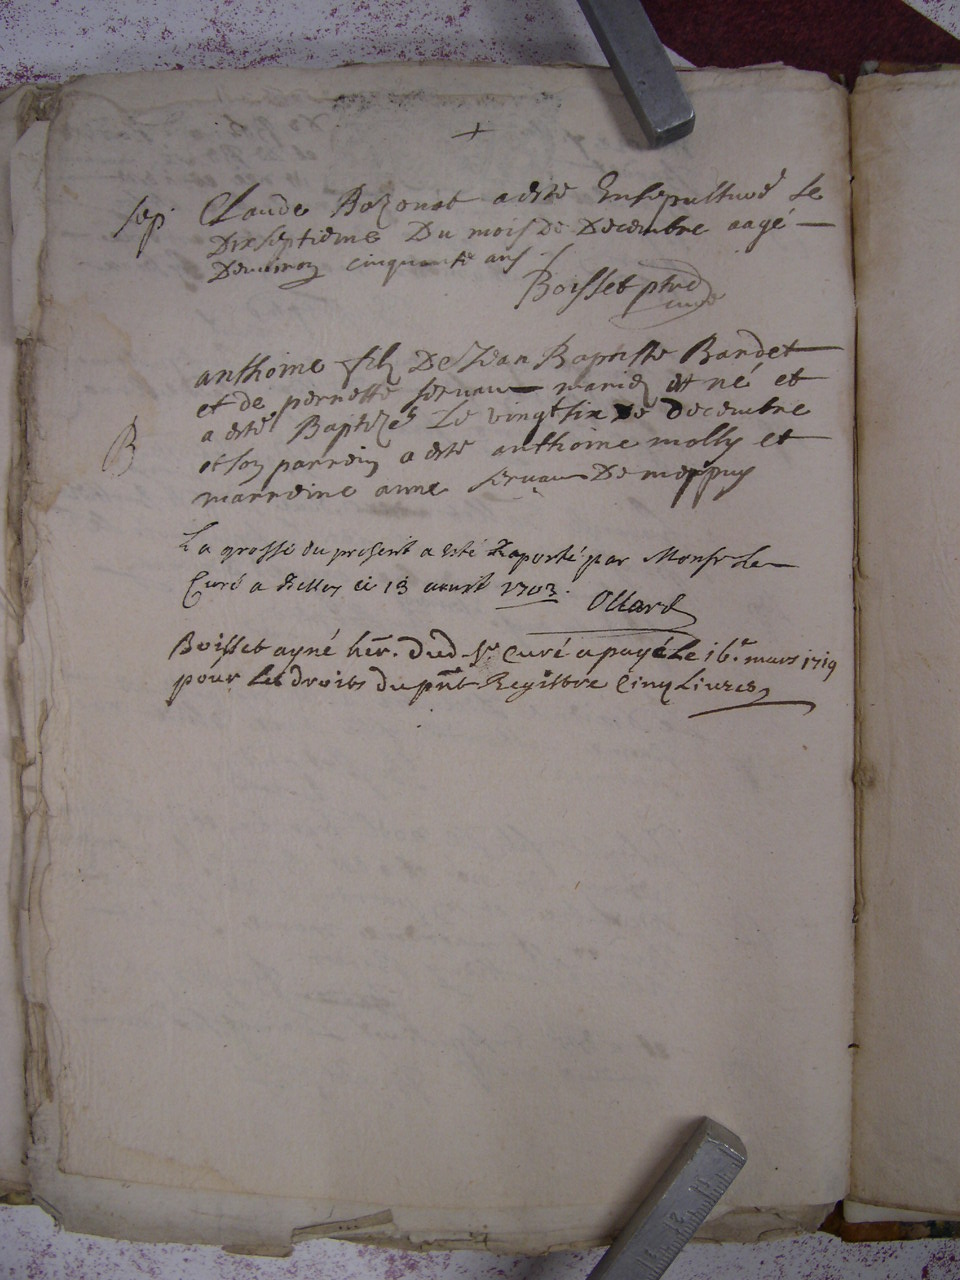 +
sep. Claude Bozonat a esté Ensepulturé Le
Dixseptieme Du mois de Decembre aagé
Denviron cinquante ans
Boisset ptre
curé
anthoine filz De Jean Baptiste Bardet
et de pernette servan mariez est né et
B a esté Baptizé Le vingt six de decembre
et son parrein a esté anthoine molly et
marreine anne servan De
La grosse du present a esté Raporté par Monsr Le
Curé a ce 13 avril 1703.
Ollard
Boisset ayné her. dud. Sr Curé a payé Le 16e mars 1719
pour Les droits du pnt Registre Cinq Livres